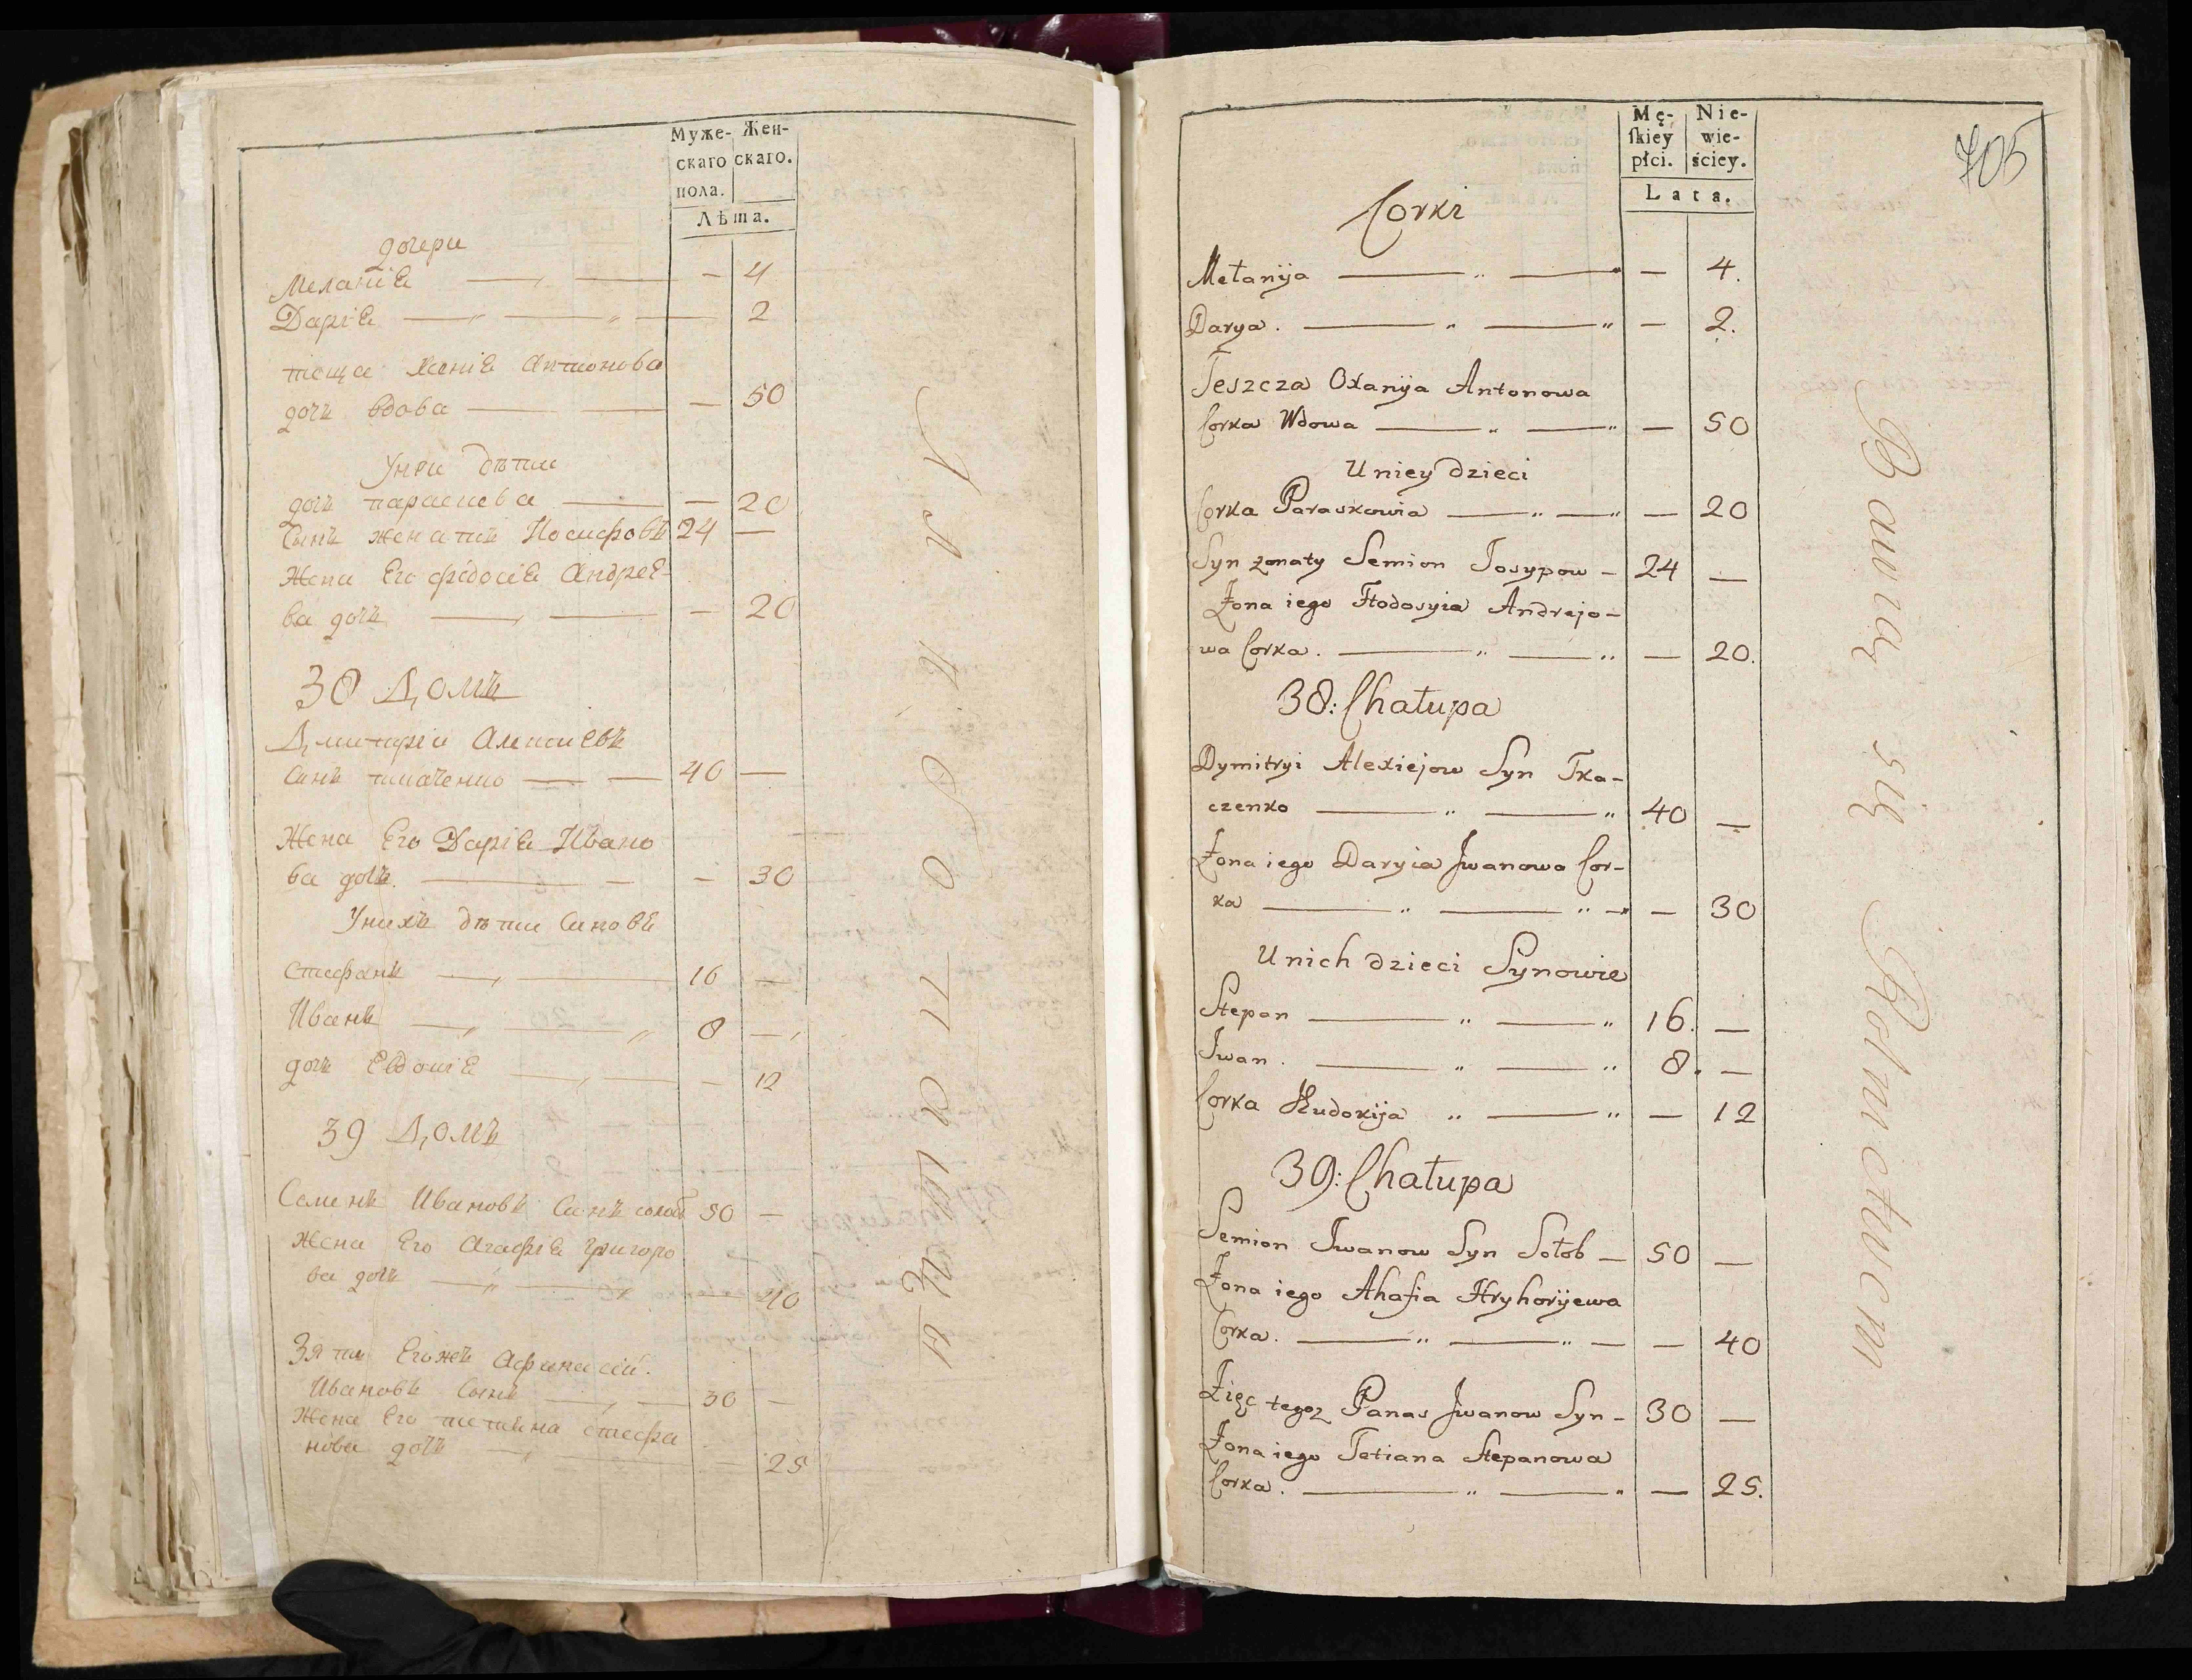 Муже- Жен-
скаго скаго.
пола.
Лѣта.
дочери
Меланiѣ — — — 4
Дарiѣ — — — 2
теща Ксенiѣ Антонова
дочъ вдова — — — 50
Унеи дѣти
дочъ параскева — — 20
Сынъ женатий Иосифовъ 24 —
Жена Его фїдосiѣ Андреѣ-
ва дочъ — — — 20
38 Домъ
Дмитрiй Алексиевъ
Синъ ткаченко — — 40 —
Жена Его Дарiѣ Ивано
ва дочъ. — — — 30
Унихъ дѣти Синовѣ
Стефанъ — — 16 —
Иванъ — — 8 —
дочъ Евдокiѣ — — — 12
39 Домъ
Семенъ Ивановъ Синъ солоб 50 —
жена Его Агафiѣ Григоро
ва дочъ — — 40
Зять Егожъ Афанасій.
Ивановъ Сынъ — — 30 —
Жена Его татияна стефа
нова дочъ — — — 25
705
Mę- Nie-
ſkiey wie-
płci. ściey.
Lata.
Corki
Mełanija — — — 4.
Darya. — — — 2.
Teszcza Oxanija Antonowa
Corka Wdowa — — — 50
U niey dzieci
Corka Paraskowia — — — 20
Syn zonaty Semion Josypow — 24 —
Żona iego Htodosyia Andrejo-
wa Corka. — — — 20.
38: Chałupa
Dymitryi Alexiejow Syn Tka-
czenko — — 40 —
Żona iego Daryia Jwanowa Cor-
ka — — — 30
U nich dzieci Synowie
Stepan — — 16. —
Jwan. — — 8. —
Corka Kudokija — — 12
39: Chałupa
Semion Jwanow Syn Sołob — 50 —
Żona iego Ahafia Hryhorijewa
Corka. — — — — 40
Zięc tegoz Panas Jwanow Syn — 30 —
Żona iego Tetiana Stepanowa
Corka. — — — 25.
Bawią się Rolnictwem